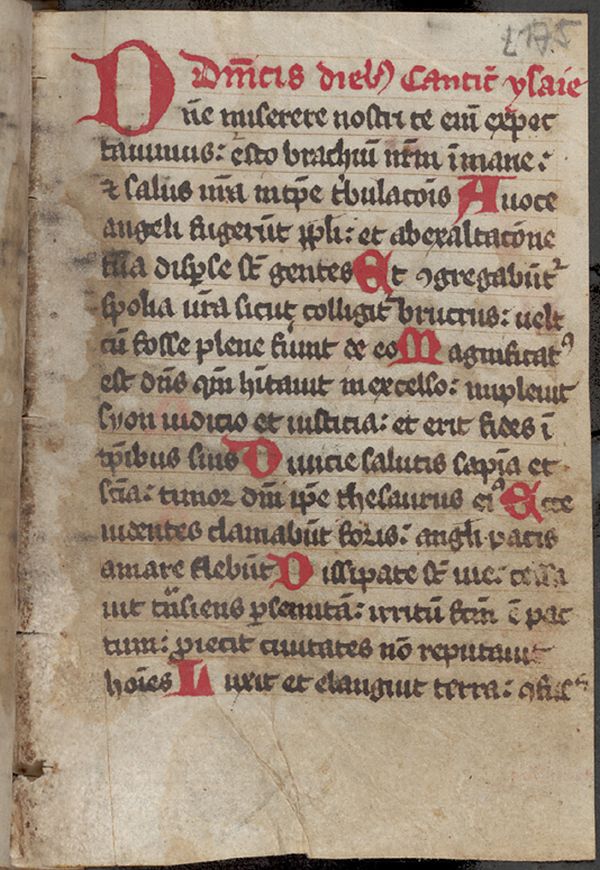 217.5
Dm̄icis dieb) Cantic̄ ysaie
Dn̄e miserere nostri te em̄ expec
tauimus: esto brachiū nr̄m ī mane:
⁊ salus nr̄a in tp̄e t̄bulacōis A uoce
angeli fugerūt pp̄li: et ab exaltacōne
tua disp̄se st̄ gentes Et ꝯgregabūt᷑
spolia vr̄a sicut colligit᷑ brucus: uelt
cū fosse plene fūint de eo Magnificatꝰ
est dn̄s qm̄ hītauit in excelso: impleuit
syon iudicio et iusticia: et erit fides ī
tp̄ibus suis Diuicie salutis sapīa et
scīa: timor dn̄i ip̄e thesaurus eiꝰ Ecce
uidentes clamabūt foris: angl̄i pacis
amare flebūt Dissipate st̄ uie: cessa
uit tn̄siens p̱ semitā: irritū fcm̄ ē pac
tum: proiecit ciuitates nō reputauit
hoīes Luxit et elanguit terra: ꝯfus